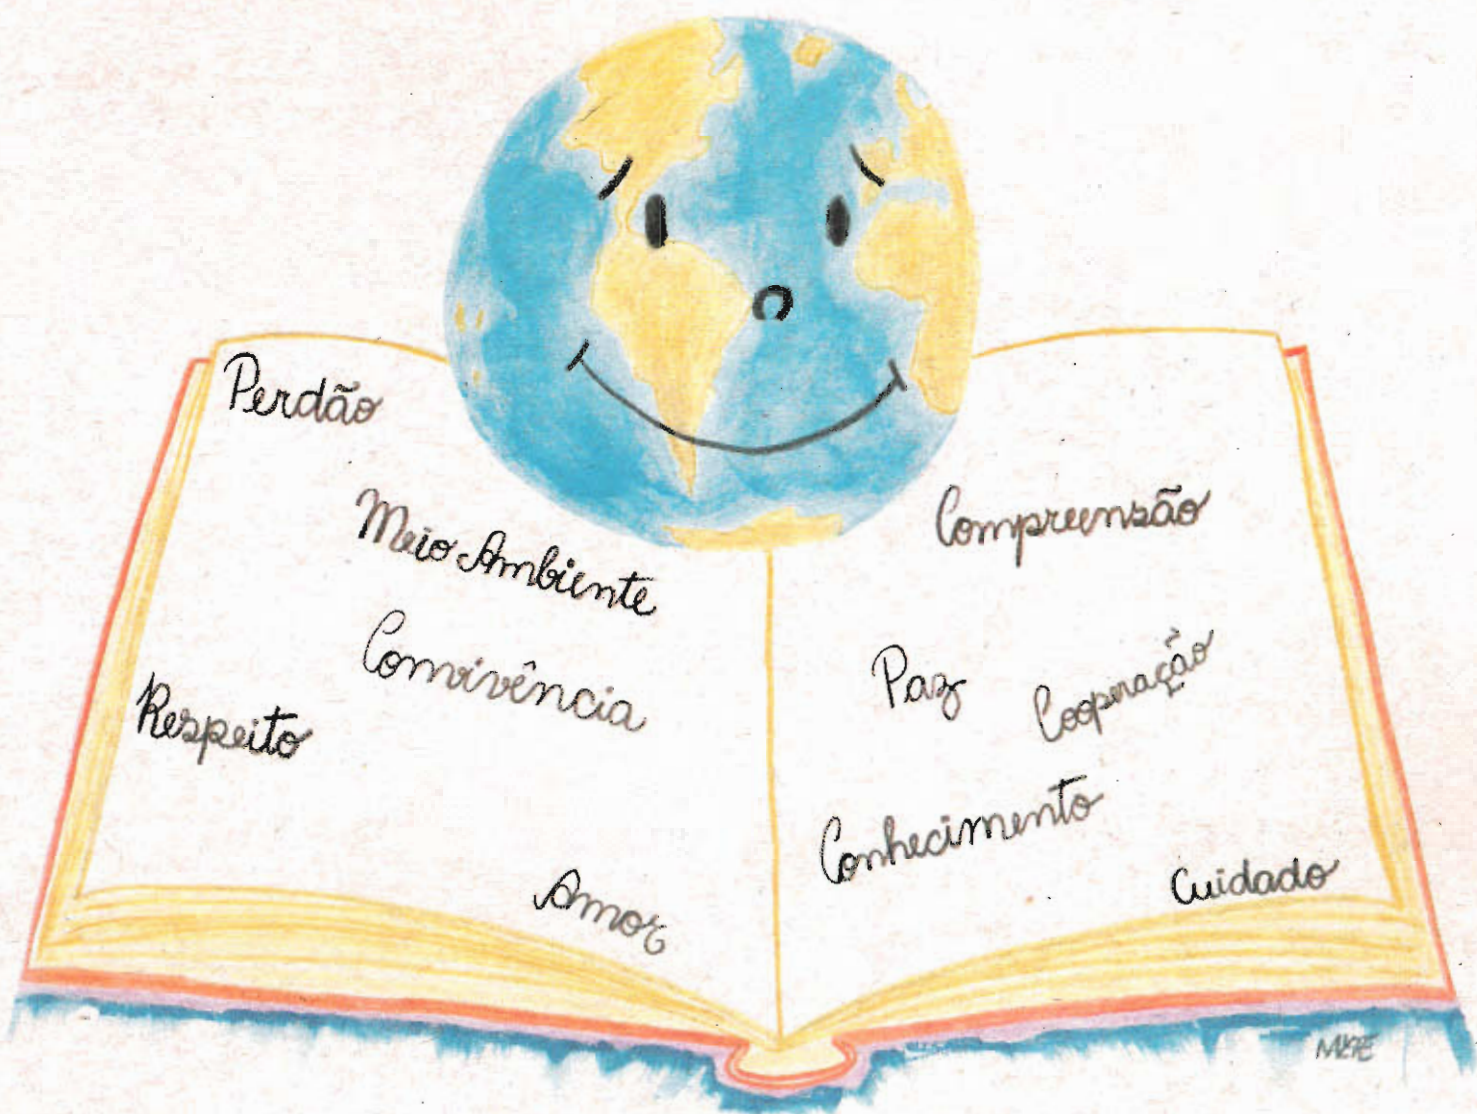 Perdão
Meio Ambiente
Convivência
Respeito
Amor
Compreensão
Paz
Cooperação
Conhecimento
Cuidado